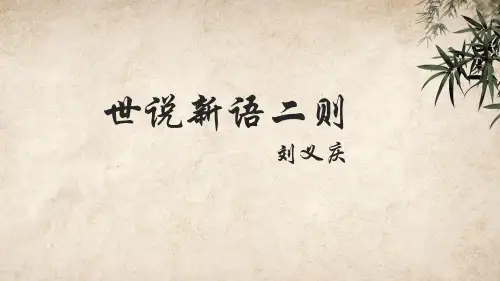 世说新语二则
刘义庆